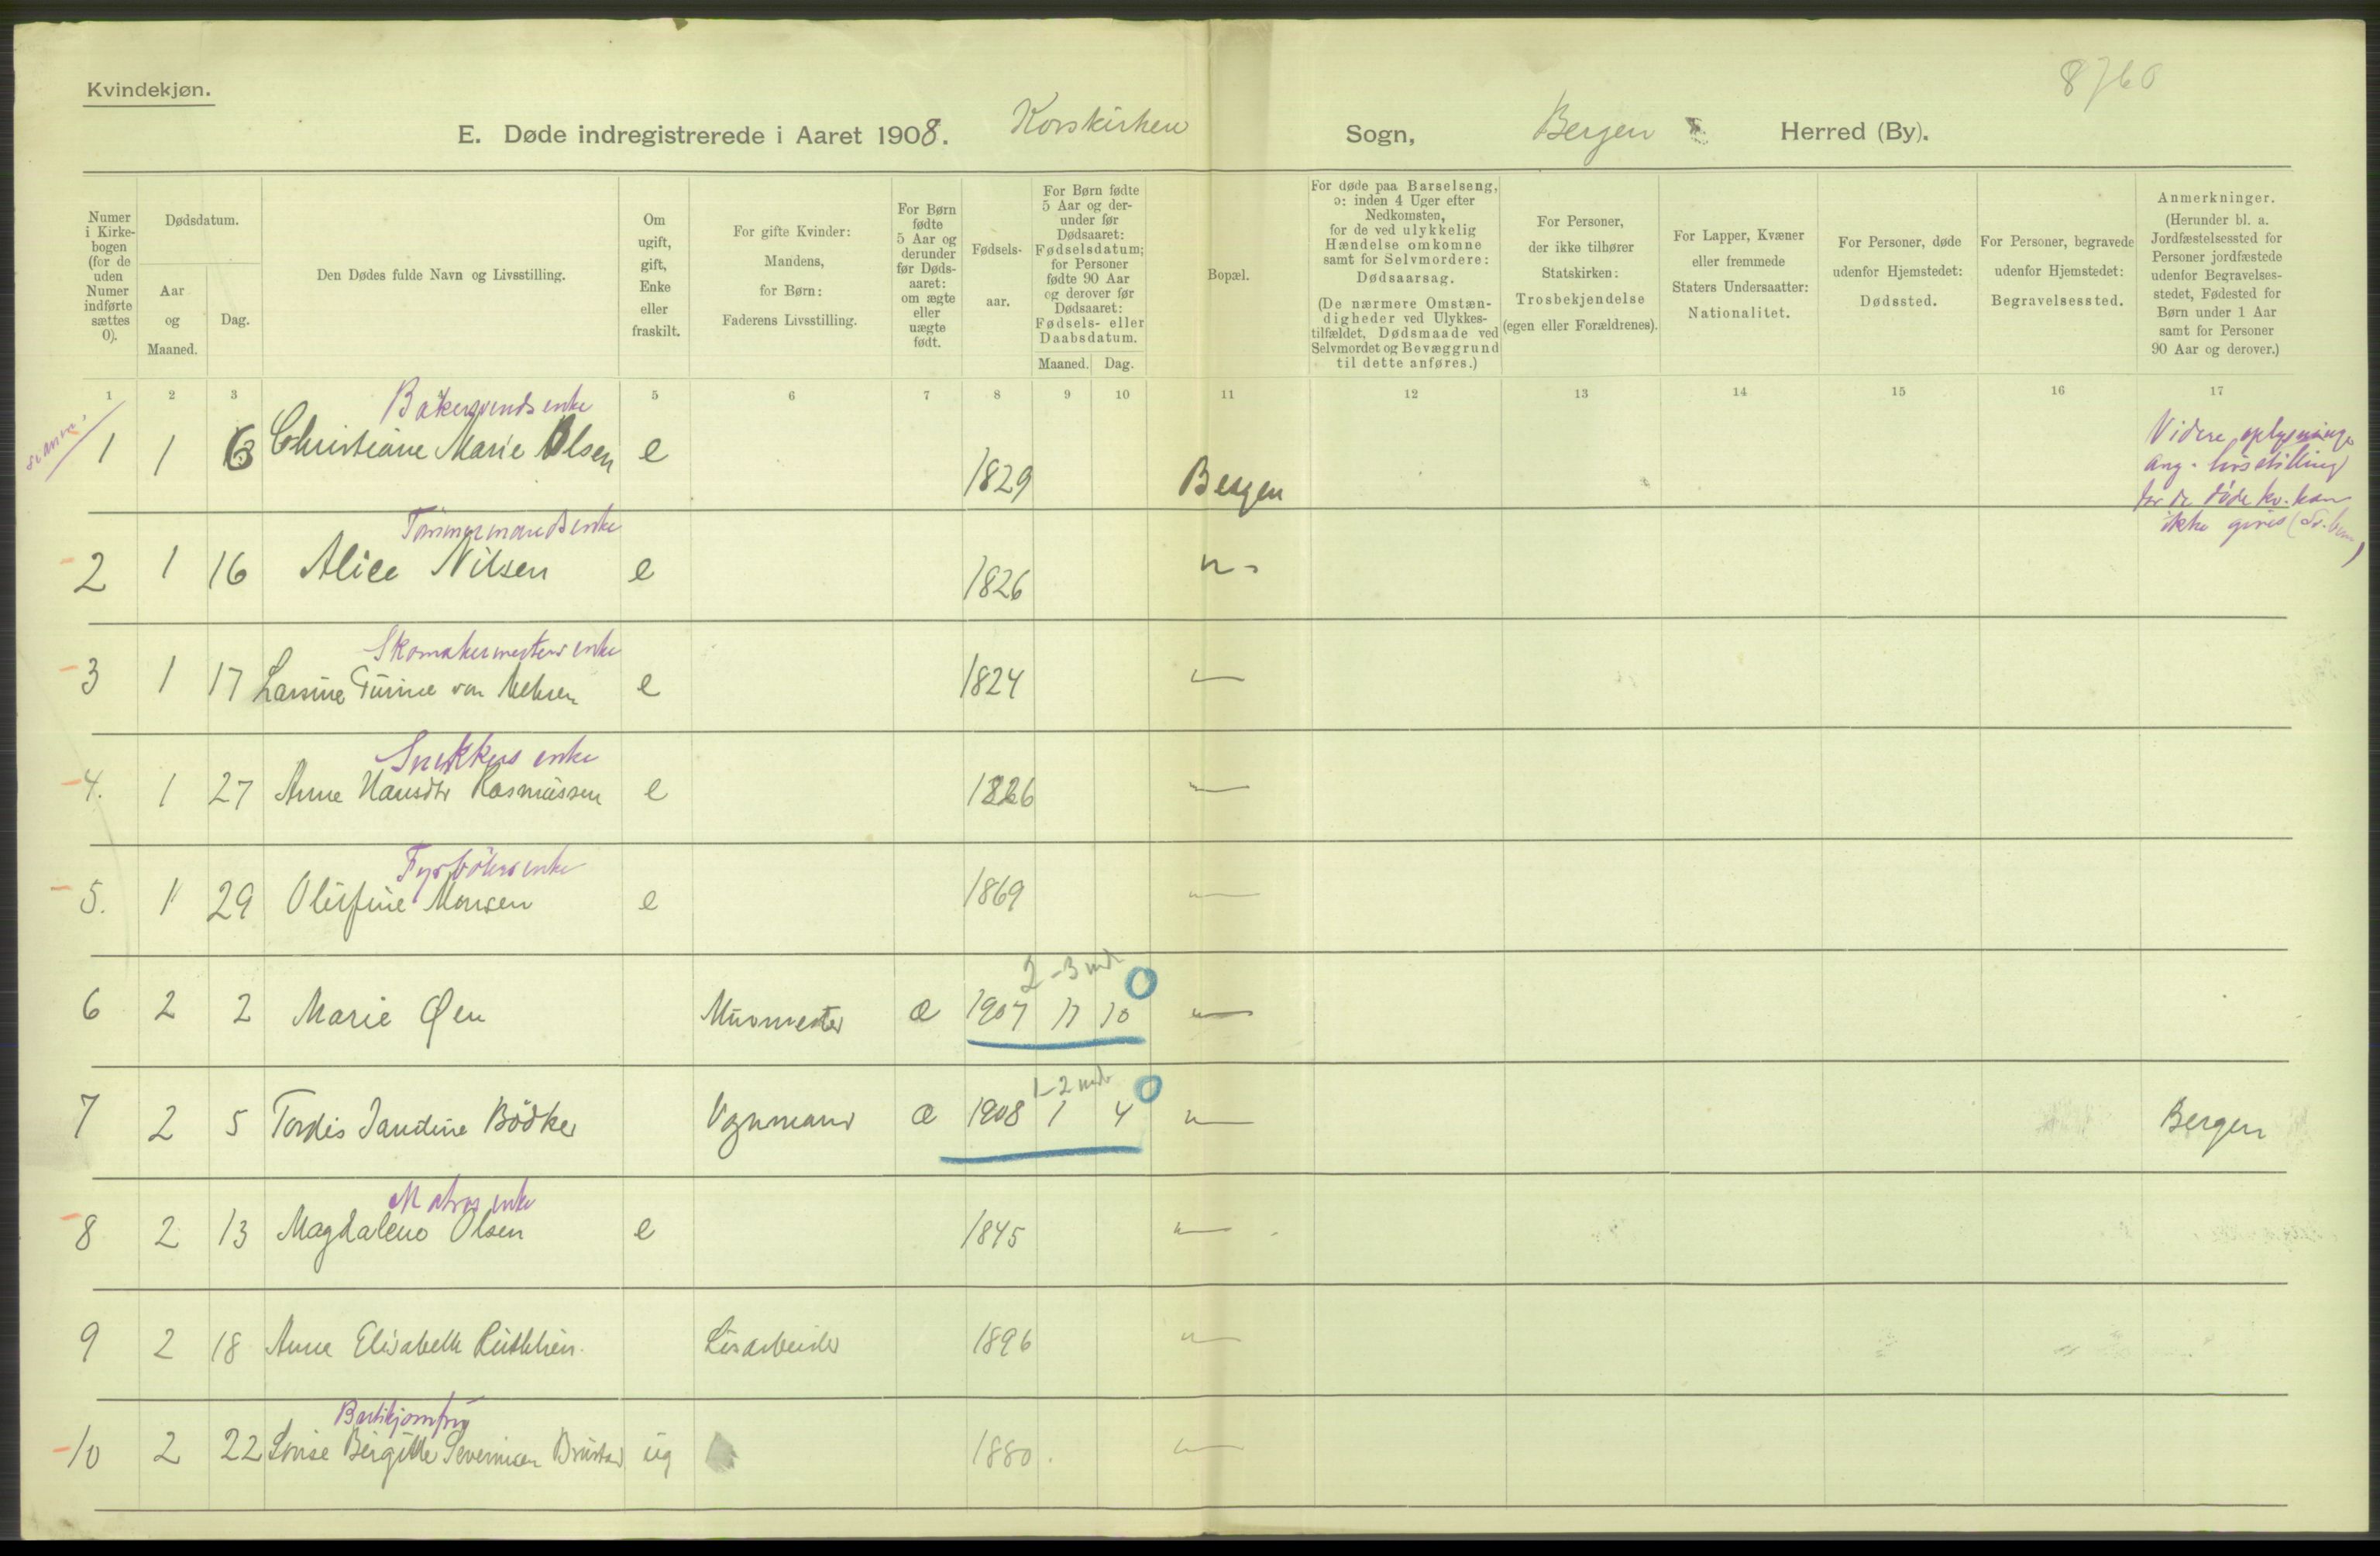 Kvindekjøn.
8760
E. Døde indregistrerede i Aaret 1908. Korskirken Sogn, Bergen Herred (By).
Numer i Kirkebogen (for de uden Numer indførte sættes 0).
Dødsdatum.
Aar og Maaned.
Dag.
Den Dødes fulde Navn og Livsstilling.
Om ugift, gift, Enke eller fraskilt.
For gifte Kvinder: Mandens, for Børn: Faderens Livsstilling.
For Børn fødte 5 Aar og derunder før Dødsaaret: om ægte eller uægte født.
Fødselsaar.
For Børn fødte 5 Aar og derunder før Dødsaaret: Fødselsdatum; for Personer fødte 90 Aar og derover før Dødsaaret: Fødsels- eller Daabsdatum.
Maaned. Dag.
Bopæl.
For døde paa Barselseng, ɔ: inden 4 Uger efter Nedkomsten, for de ved ulykkelig Hændelse omkomne samt for Selvmordere: Dødsaarsag.
(De nærmere Omstændigheder ved Ulykkestilfældet, Dødsmaade ved Selvmordet og Bevæggrund til dette anføres.)
For Personer, der ikke tilhører Statskirken: Trosbekjendelse (egen eller Forældrenes).
For Lapper, Kvæner eller fremmede Staters Undersaatter: Nationalitet.
For Personer, døde udenfor Hjemstedet: Dødssted.
For Personer, begravede udenfor Hjemstedet: Begravelsessted.
Anmerkninger.
(Herunder bl. a. Jordfæstelsessted for Personer jordfæstede udenfor Begravelsesstedet, Fødested for Børn under 1 Aar samt for Personer 90 Aar og derover.)
1 2 3 5 6 7 8 9 10 11 12 13 14 15 16 17
Bakersvends enke
1 1 6 Christiane Marie Olsen e 1829 Bergen
Videre oplysninger
ang. livsstilling
for de døde kv. kan
ikke gives
Tømmermands enke
2 1 16 Alice Nilsen e 1826 " -
Skomakermesters enke
3 1 17 e 1824 "
Snekkers enke
4. 1 27 Anne Hansdtr Rasmussen e 1826 "
Fyrbøters enke
5. 1 29 Olufine Monsen e 1869 "
2-3 md. 0
6 2 2 Marie Øen Murmester æ 1907 11 10 "
1-2 md. 0
7 2 5 Tordis Jandine Bödker Vognmand æ 1908 1 4 " Bergen
Matros enke
8 2 13 Magdalene Olsen e 1845 "
9 2 18 Anna Elisabeth Løsarbeider 1896 "
10 2 22 Lovise Birgitte Severinsen ug 1880. "